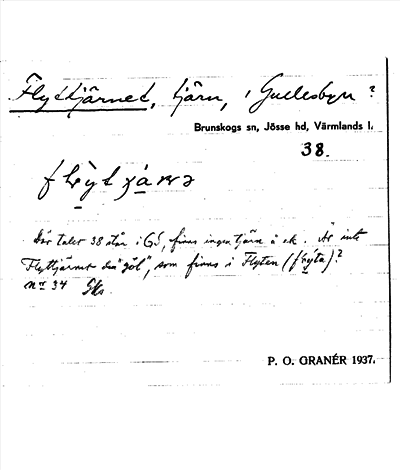 Flyttjärnet, tjärn, i Gullesbyn?
Brunskogs sn, Jösse hd, Värmlands l.
38.
Där talet 38 står i GS, finns ingen tjärn å ek. Är inte
Flyttjärnet den "göl", som finns i Flyten
nr 34 Gks
P. O. GRANÉR 1937.